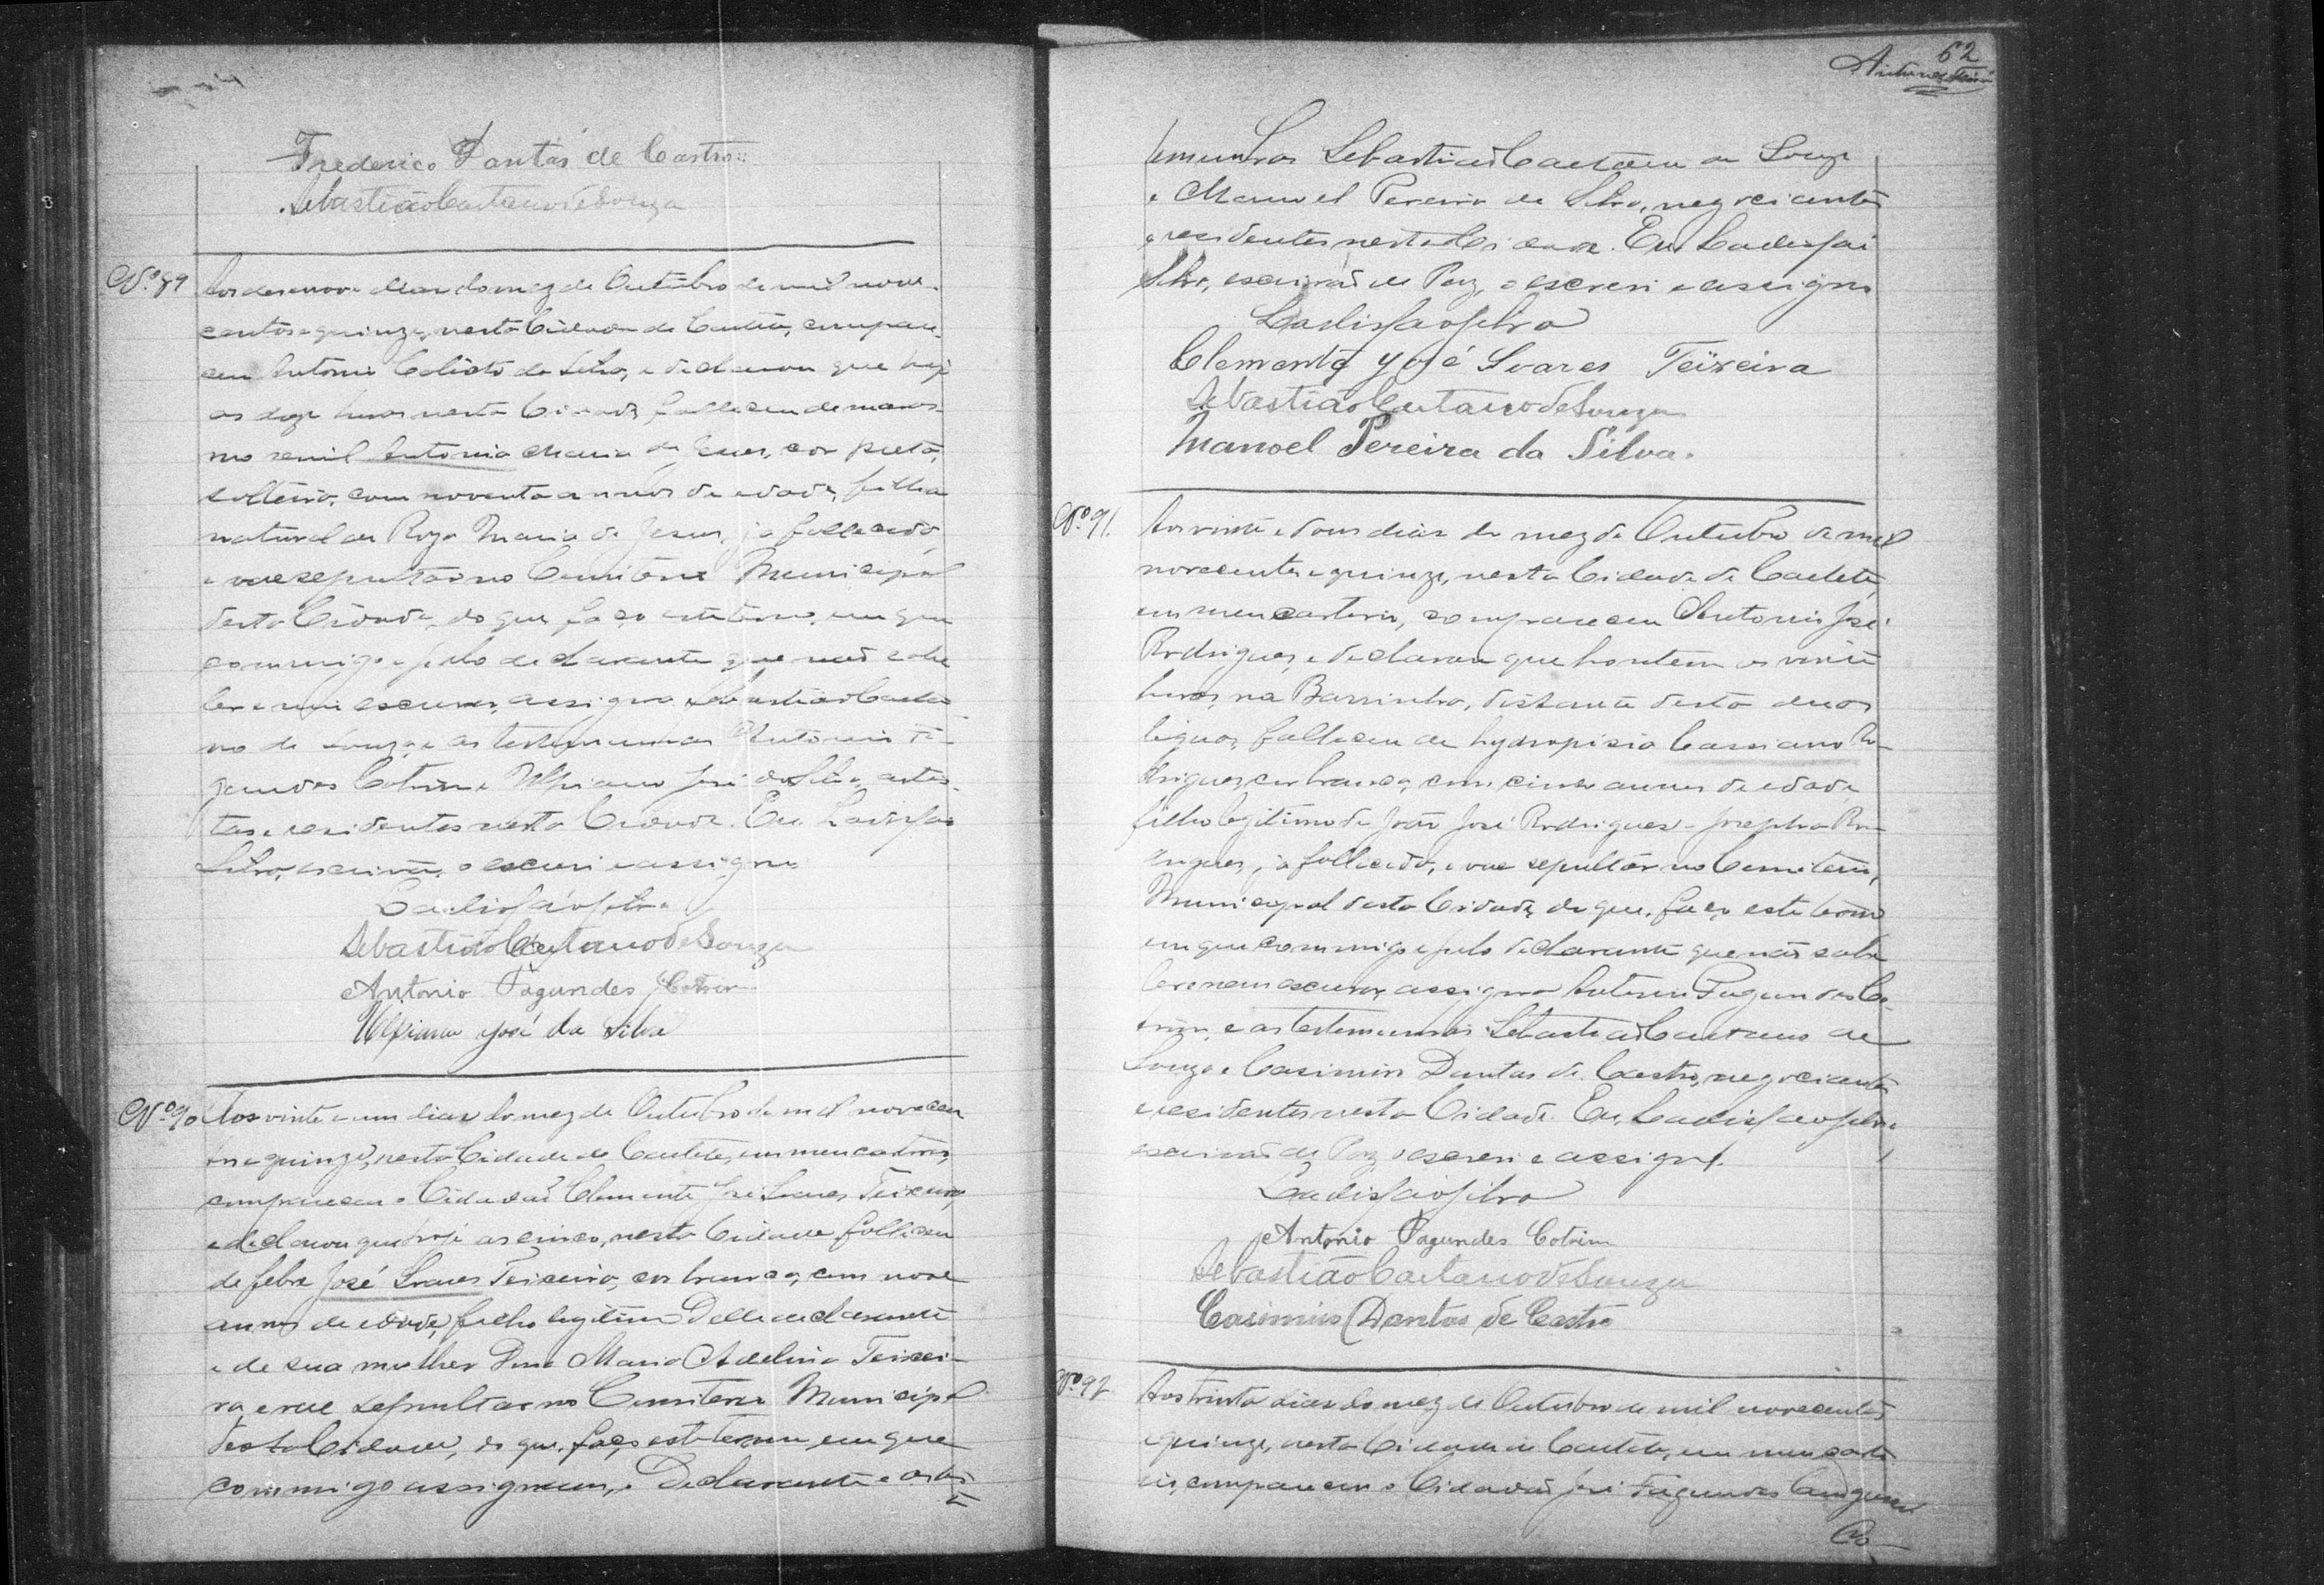 Frederico Dantas de Castro
Sebastião Caetano de Souza
Nº 89 Aos desenove dias do mez de Outubro de mil nove-
centos e quinze, nesta Cidade de Caeteté, compare-
ceu Antonio Calisto da Silva, e declarou que hoje
as doze horas nesta Cidade, falleceu de maras-
mo senil Antonia Maria de Jesus, cor preta,
solteira, com noventa annos de edade, filha
natural de Roza Maria de Jesus, já fallecida,
e vae sepultar no Cemiterio Municipal
desta Cidade, do que faço este termo, em que
commigo e pelo declarante que não sabe
ler e nem escrever, assigna Sebastião Caeta-
no de Souza e as testemunhas Antonio Fa-
gundes Cotrim e Ulpiano José da Silva, artis-
tas e residentes nesta Cidade. Eu Ladisláo
Silva, escrivão, o escrevi e assigno
Ladisláo Silva
Sebastião Caetano de Souza
Antonio Fagundes Cotrim
Ulpiano José da Silva
Nº 90 Aos vinte e um dias do mez de Outubro de mil novecen
tos e quinze, nesta Cidade de Caeteté, em meu cartorio,
compareceu o Cidadão Clemente José Soares Teixeira,
e declarou que hoje as cinco, nesta Cidade falleceu
de febre José Soares Teixeira, cor branca, com nove
annos de edade, filho legitimo delle declarante
e de sua mulher Dona Maria Adelina Teixei-
ra, e vae sepultar no Cemiterio Municipal
desta Cidade, do que, faço este termo, em que
commigo assignam, o Declarante e as tes-
62
temunhas Sebastião Caetano de Souza
e Manoel Pereira da Silva, negociantes
e residentes nesta Cidade. Eu Ladisláo
Silva, escrivão de Paz, o escrevi e assigno
Ladisláo Silva
Clemente José Soares Teixeira
Sebastião Caetano de Souza
Manoel Pereira da Silva.
Nº 91. Aos vinte e dous dias do mez de Outubro de mil
novecentos e quinze, nesta Cidade de Caeteté,
em meu cartorio, compareceu Antonio José
Rodrigues, e declarou que hontem as vinte
horas, na Barrinha, distante desta duas
leguas, falleceu de hydropisia Cassiano Ro-
drigues, cor branca, com cinco annos de edade
filho legitimo de João José Rodrigues e Josepha Ro-
drigues, já fallecida, e vae sepultar no Cemiterio,
Municipal desta Cidade, do que, faço este termo
em que commigo e pelo declarante que não sabe
ler e nem escrever, assigna Antonio Fagundes Co-
trim, e as testemunhas Sebastião Caetano de
Souza e Casimiro Dantas de Castro, negociantes
e residentes nesta Cidade. Eu, Ladisláo Silva
escrivão de Paz, o escrevi e assigno.
Ladisláo Silva
Antonio Fagundes Cotrim
Sebastião Caetano de Souza
Casimiro Dantas de Castro
Nº 92 Aos trinta dias do mez de Outubro de mil novecentos
e quinze, nesta Cidade de Caeteté, em meu carto
rio, compareceu o Cidadão José Fagundes
Co-